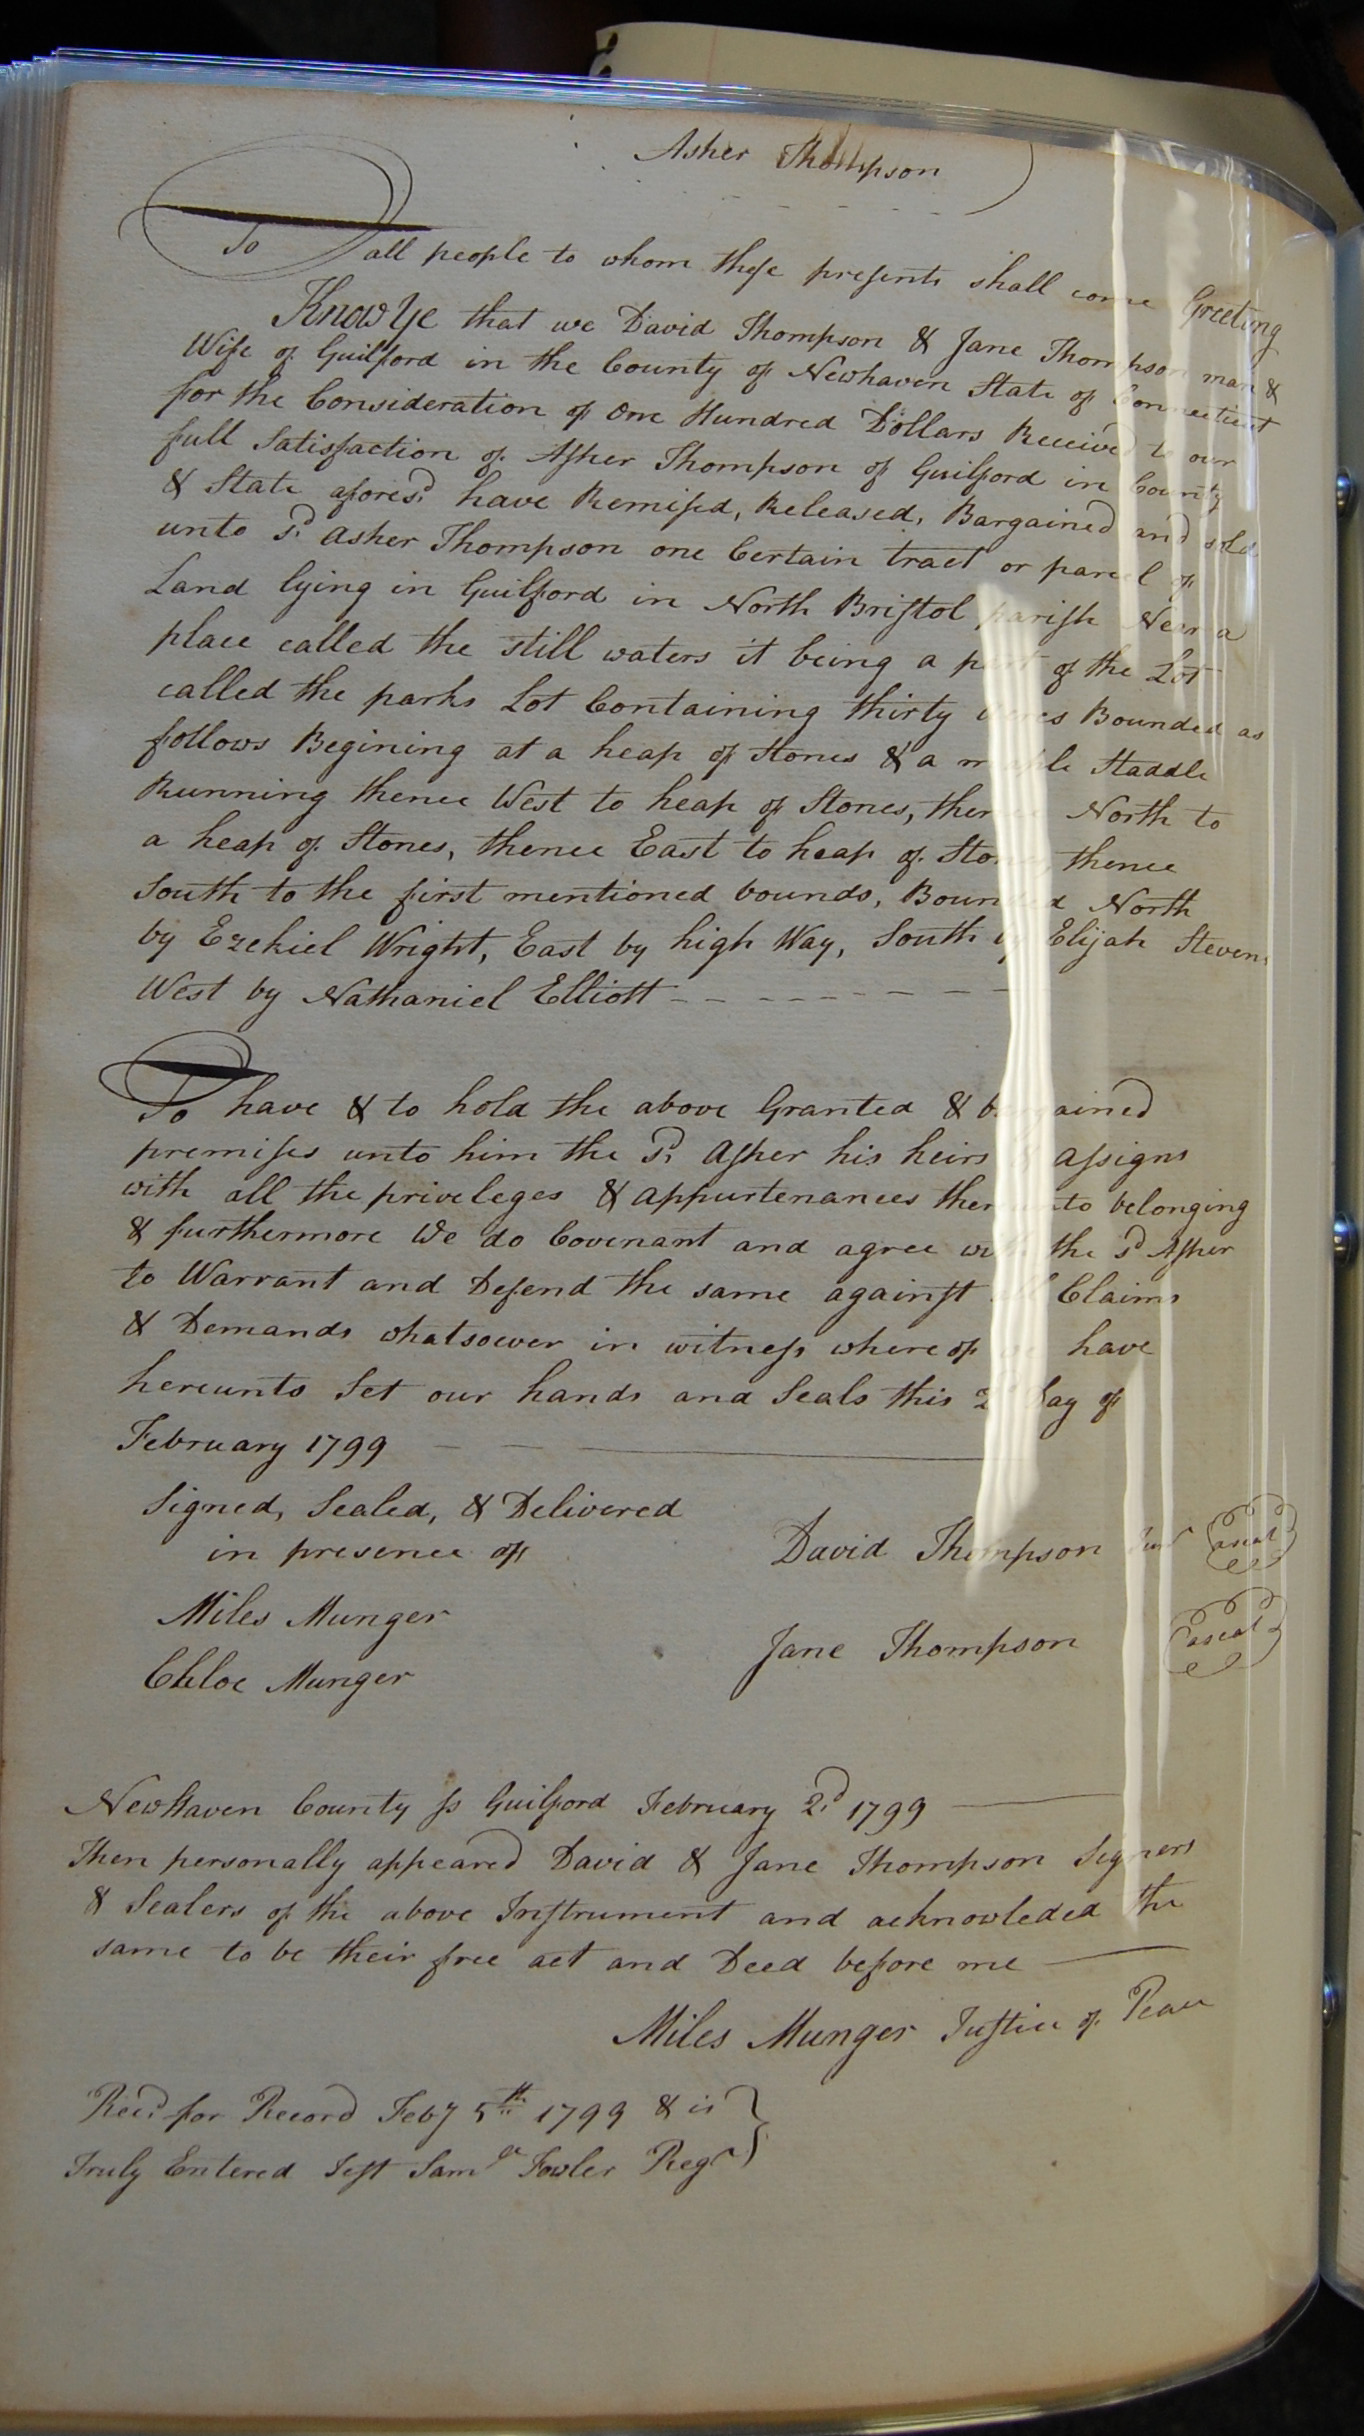 Asher Thompson
To all people to whom these presents shall come Greeting
Know Ye that we David Thompson & Jane Thompson man &
Wife of Guilford in the County of Newhaven State of Connecticut
for the Consideration of One Hundred Dollars Received to our
full Satisfaction of Asher Thompson of Guilford in County
& State afores.d have Remised, Released, Bargained and sold
unto s.d Asher Thompson one Certain tract or parcel of
Land lying in Guilford in North Bristol parish Near a
place called the still waters it being a part of the Lot
called the parks Lot Containing thirty acres Bounded as
follows Begining at a heap of Stones & a maple Staddle
Running thence West to heap of Stones, thence North to
a heap of Stones, thence East to heap of Stones, thence
South to the first mentioned bounds, Bounded North
by Ezekiel Wright, East by high Way, South by Elijah Stevens
West by Nathaniel Elliott
To have & to hold the above Granted & bargained
premises unto him the s.d Asher his heirs & assigns
with all the priveleges & appurtenances thereunto belonging
& furthermore We do Covenant and agree with the s.d Asher
to Warrant and Defend the same against all Claims
& Demands whatsoever in witness where of we have
hereunto Set our hands and Seals this 2d Day of
February 1799
Signed, Sealed, & Delivered
in presence of
David Thompson Junr a seal
Miles Munger
Jane Thompson a seal
Chloe Munger
NewHaven County ss Guilford February 2.d 1799
Then personally appeared David & Jane Thompson Signers
& Sealers of the above Instrument and acknowleded the
same to be their free act and Deed before me
Miles Munger Justice of Peace
Rec.d for Record Feby 5th 1799 & is
Truly Entered Test Saml Fowler Regr